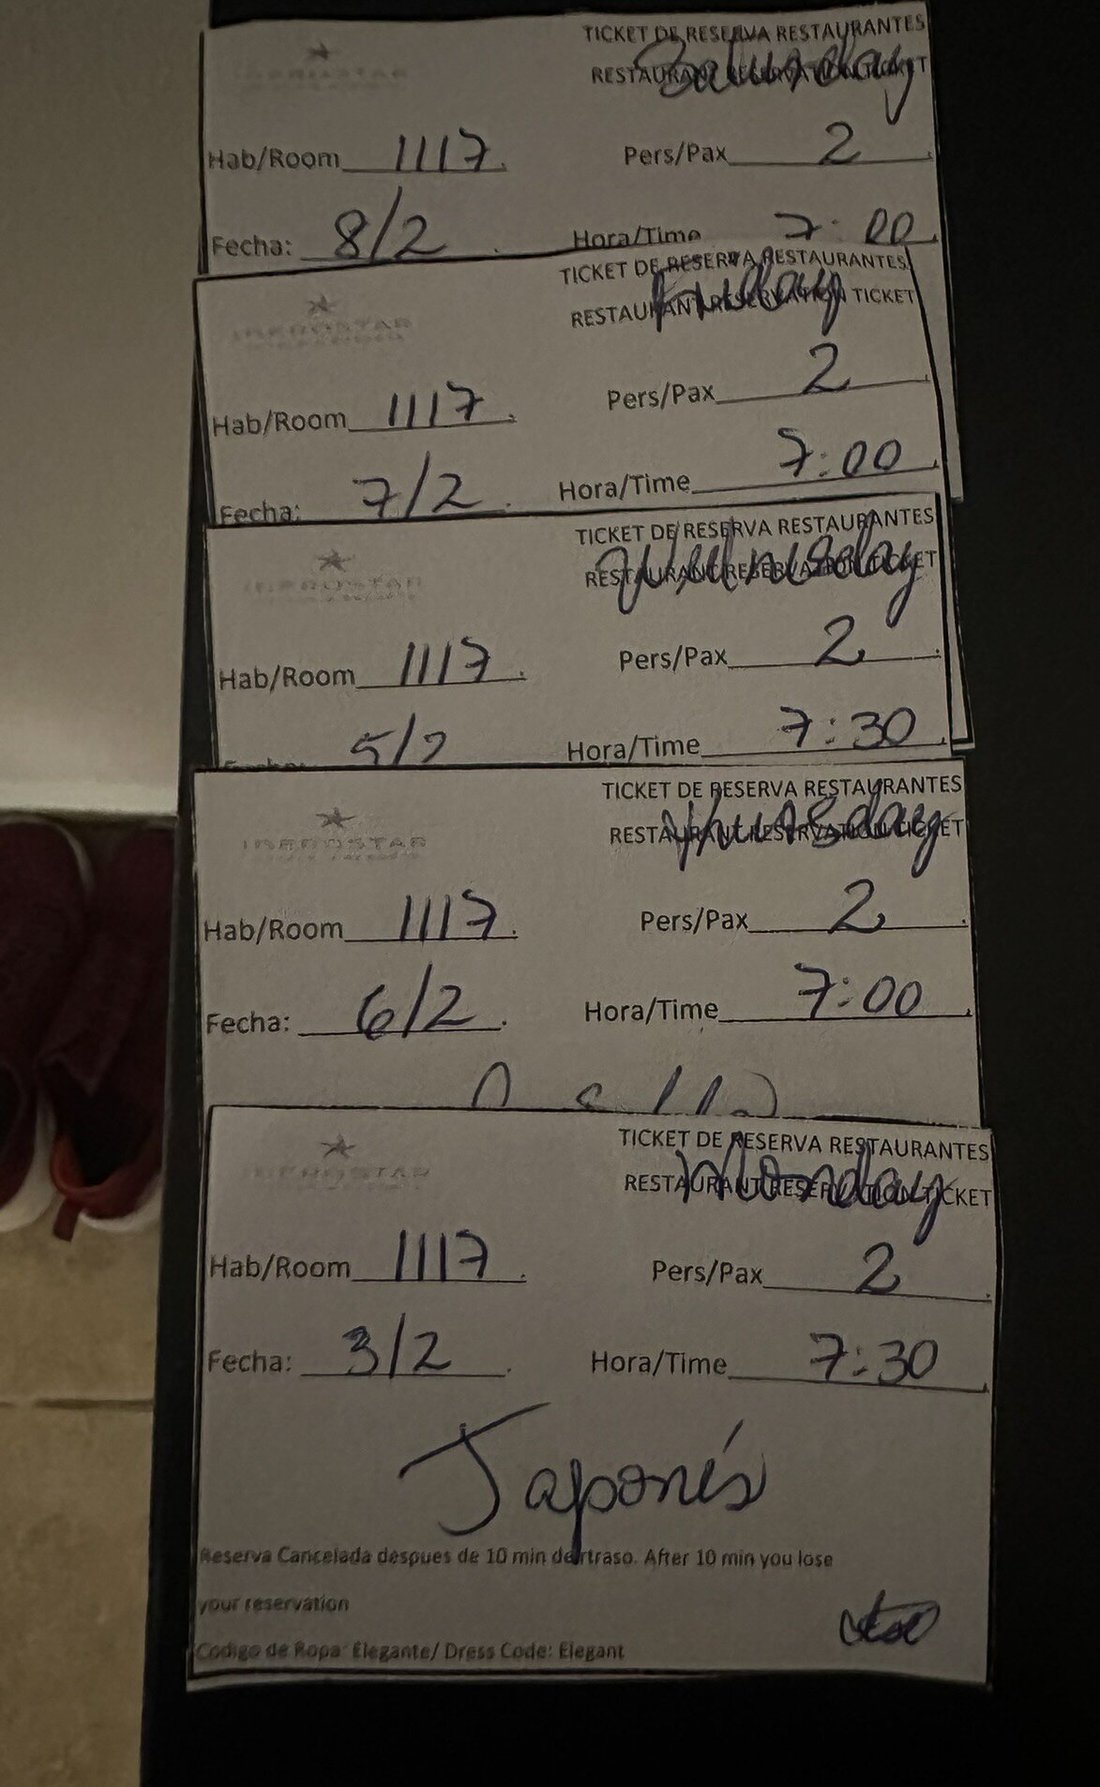 TICKET DE RESERVA RESTAURANTES
Saturday
RESTAURANT RESERVATION TICKET
Hab/Room 1117. Pers/Pax 2
Fecha: 8/2 . Hora/Time 7:00
TICKET DE RESERVA RESTAURANTES
Friday
RESTAURANT RESERVATION TICKET
IBEROSTAR
Hab/Room 1117. Pers/Pax 2
Fecha: 7/2 . Hora/Time 7:00
TICKET DE RESERVA RESTAURANTES
RESTAURANT RESERVATION TICKET
IBEROSTAR
Hab/Room 1117. Pers/Pax 2
Fecha: 5/2 Hora/Time 7:30
TICKET DE RESERVA RESTAURANTES
Thursday
RESTAURANT RESERVATION TICKET
IBEROSTAR
Hab/Room 1117. Pers/Pax 2
Fecha: 6/2 . Hora/Time 7:00
TICKET DE RESERVA RESTAURANTES
Monday
RESTAURANT RESERVATION TICKET
IBEROSTAR
Hab/Room 1117. Pers/Pax 2
Fecha: 3/2 . Hora/Time 7:30
Japonés
Reserva Cancelada despues de 10 min de rtraso. After 10 min you lose
your reservation
Codigo de Ropa: Elegante/ Dress Code: Elegant